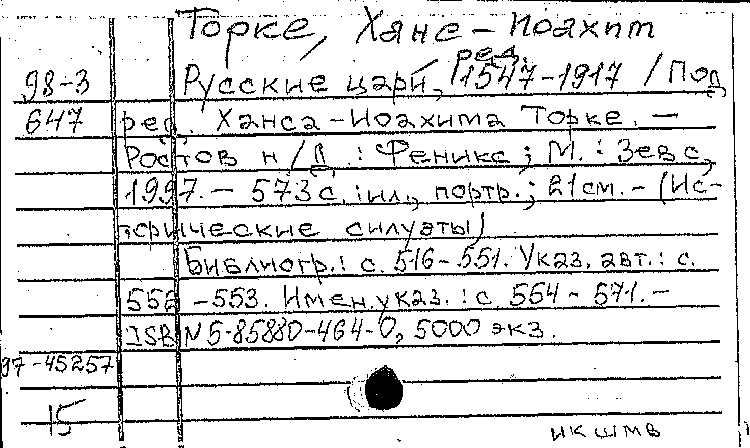 Торке, Ханс-Иоахим
ред.
98-3 Русские цари, 1547-1917 / Под
647 ред. Ханса-Иоахима Торке. —
Ростов н/Д. : Феникс ; М. : Зевс,
1997. — 573 с. : ил., портр. ; 21 см. — (Ис-
торические силуэты)
Библиогр.: с. 516-551. Указ. авт.: с.
552-553. Имен. указ.: с 554-571. —
ISBN 5-85880-464-0, 5000 экз.
97-45257
15
ик шмв